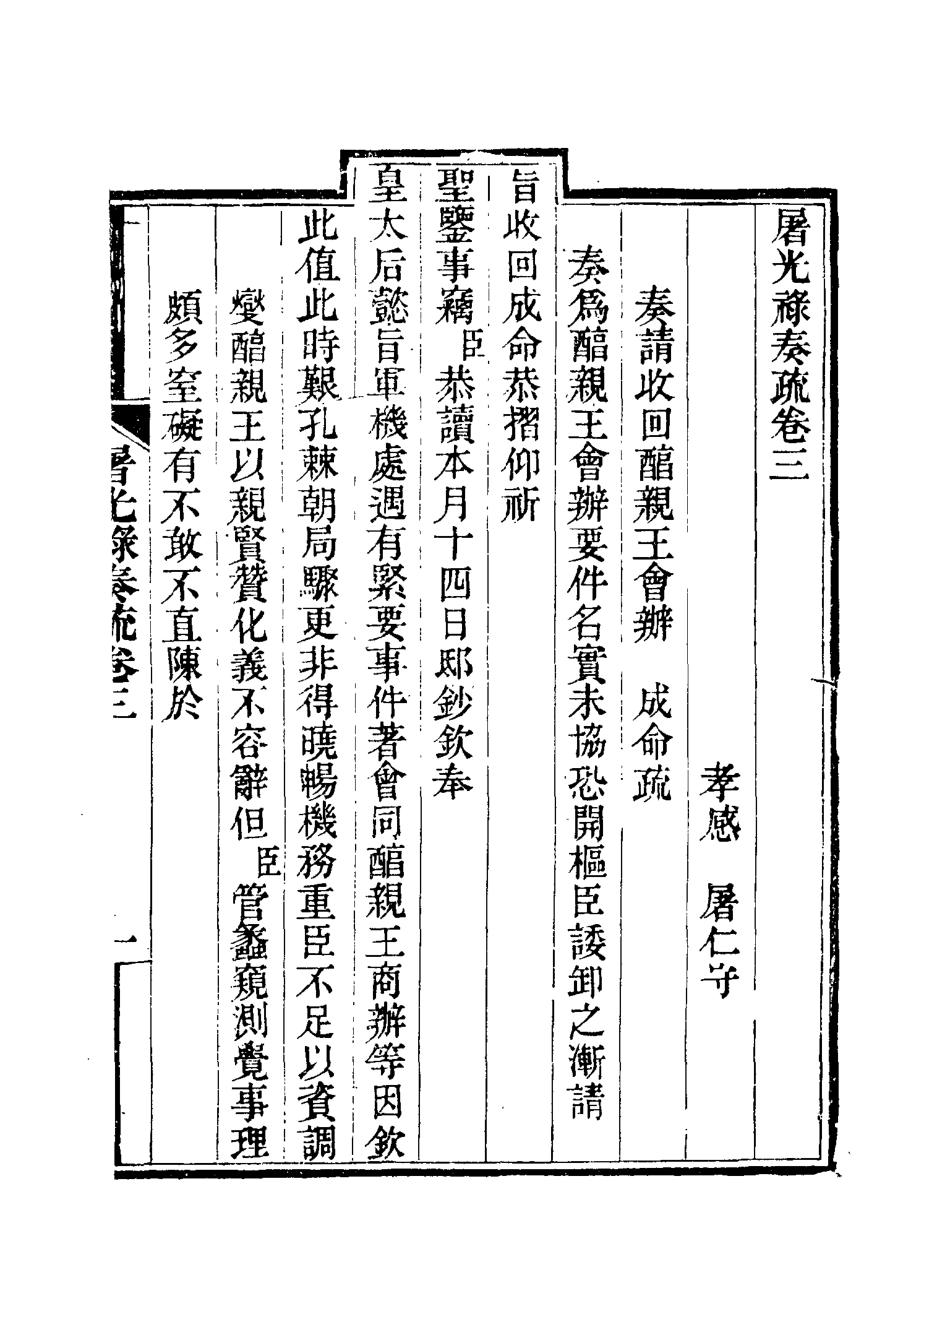 屠光祿奏疏卷三
孝感　屠仁守
奏請收回醕親王會辦　成命疏
奏爲醕親王會辦要件名實未協恐開樞臣諉卸之漸請
旨收回成命恭摺仰祈
聖鑒事竊臣恭讀本月十四日邸鈔欽奉
皇太后懿旨軍機處遇有緊要事件著會同醕親王商辦等因欽
此値此時艱孔棘朝局驟更非得曉暢機務重臣不足以資調
燮醕親王以親賢贊化義不容辭但臣管蠡窺測覺事理
頗多窒礙有不敢不直陳於
屠光祿奏疏卷三
一